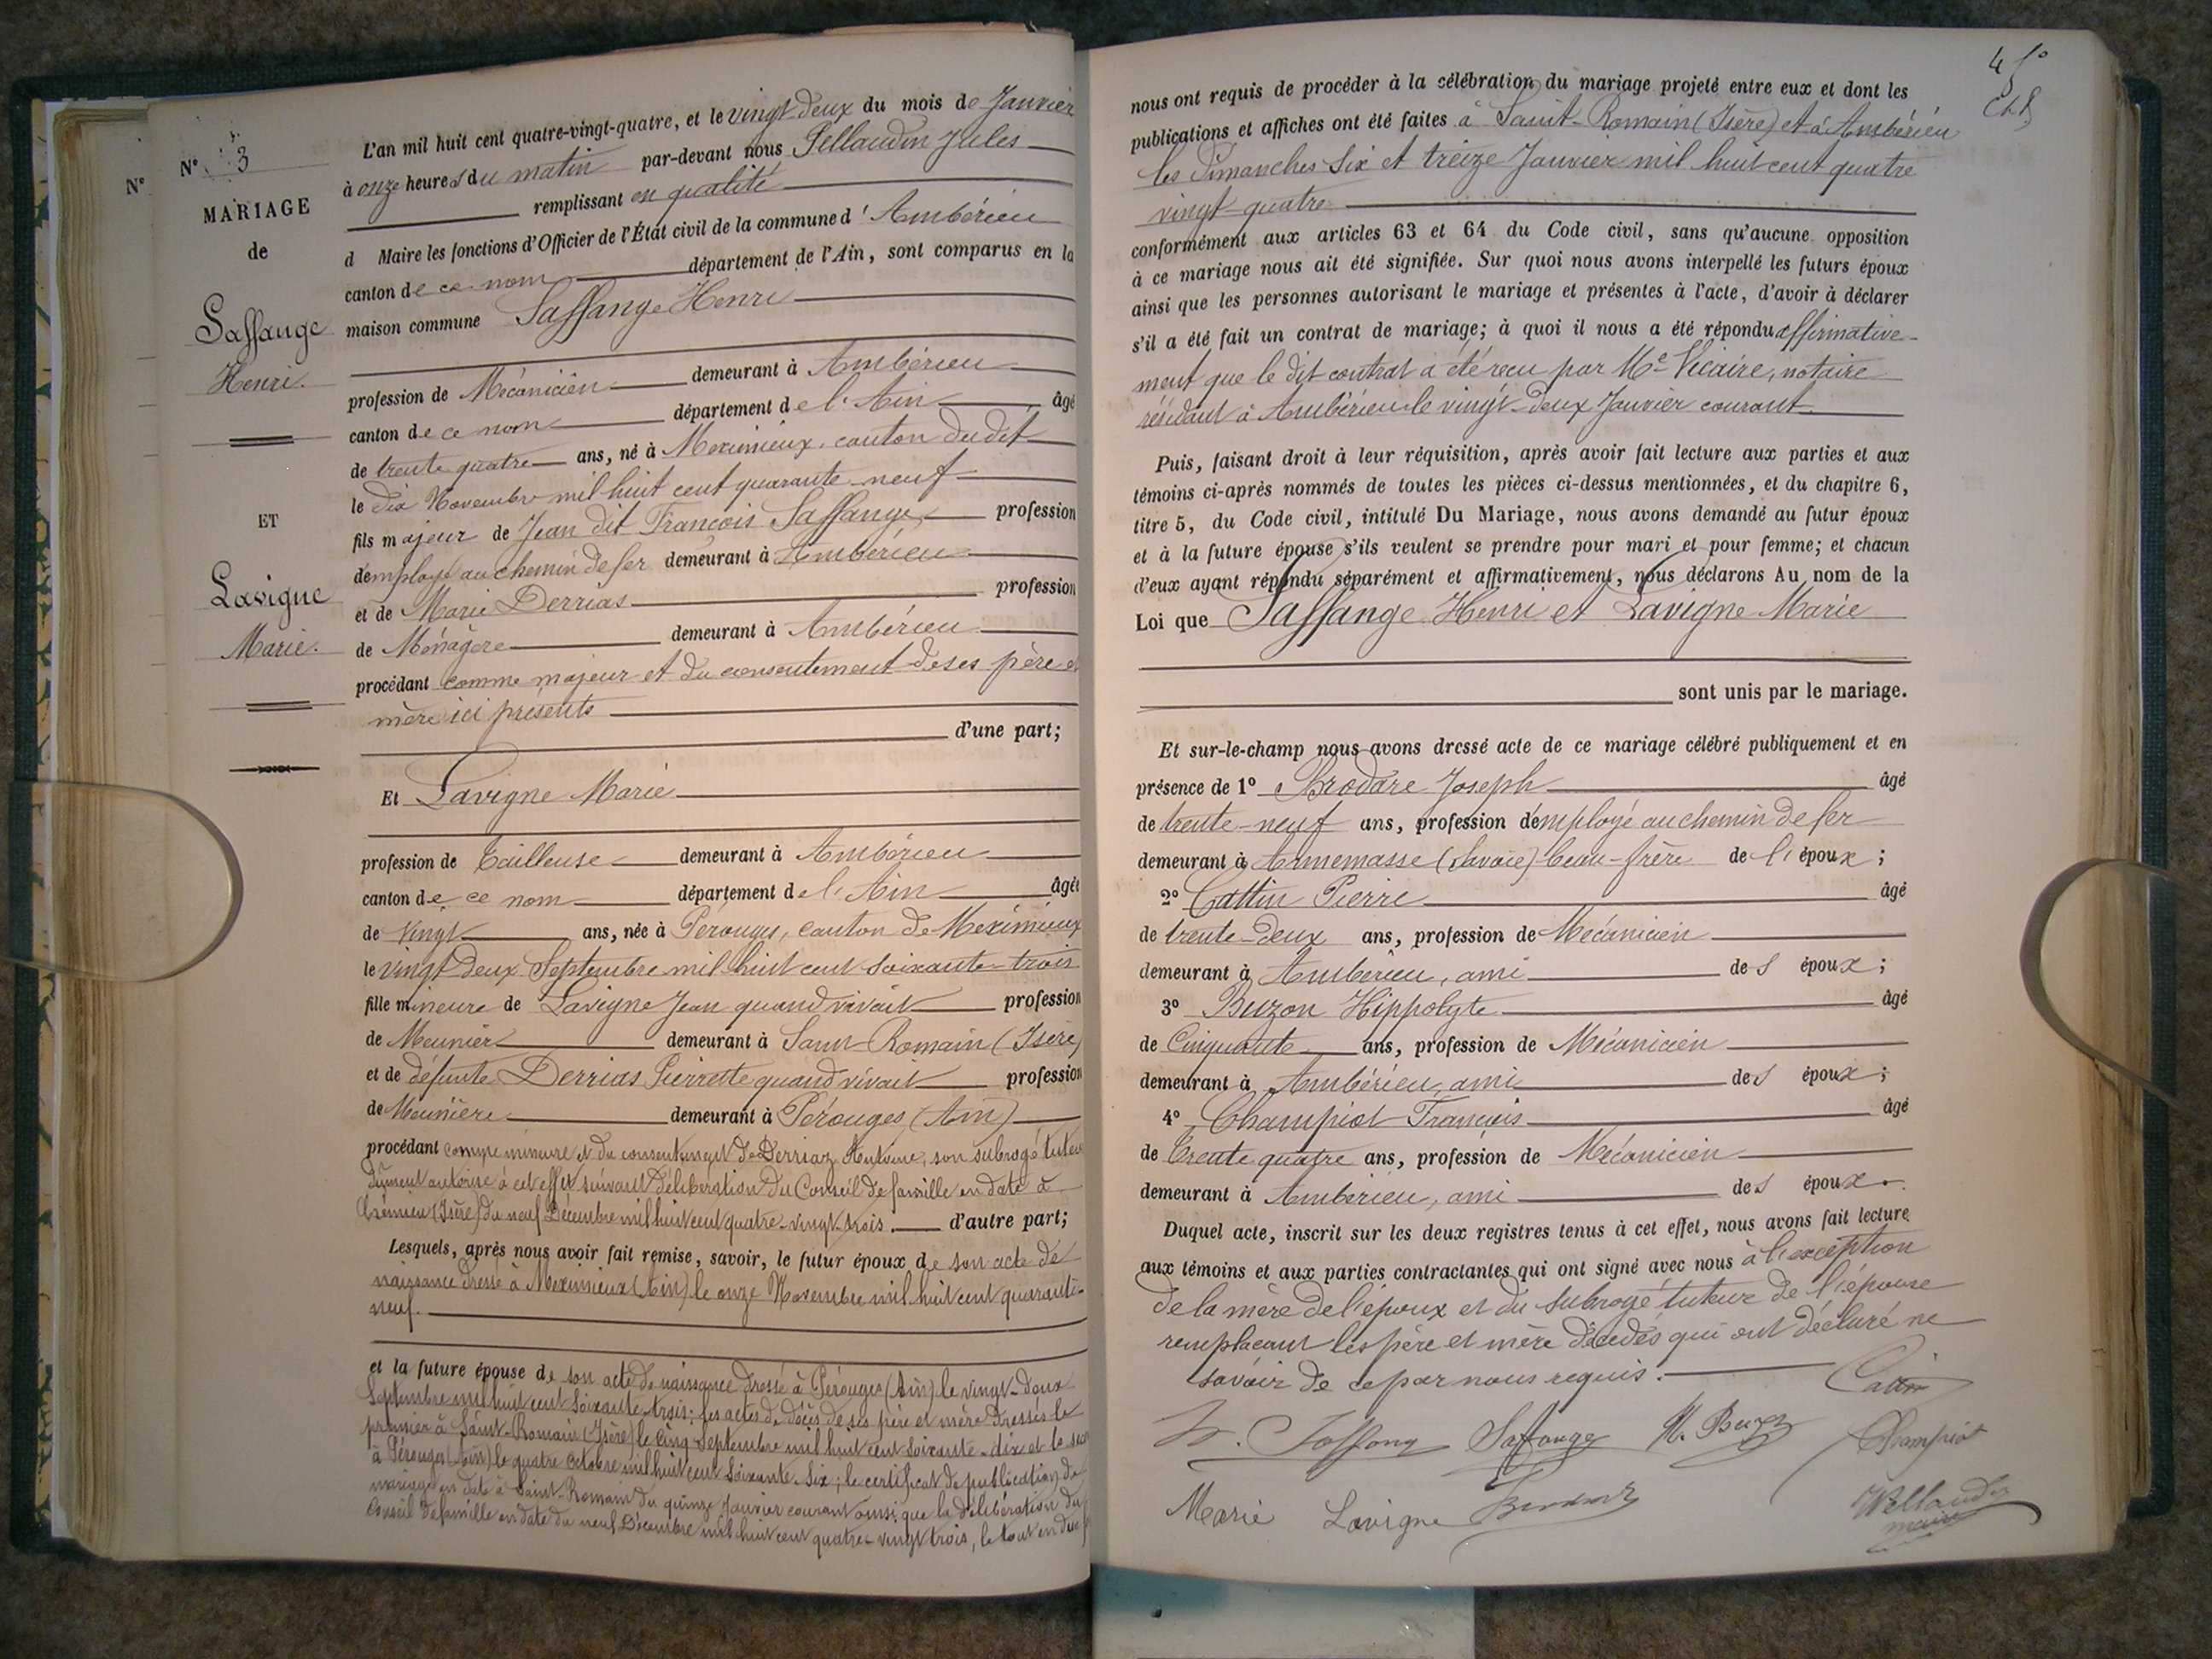 N° 3
N°
MARIAGE
de
Saffange
Henri.
ET
Lavigne
Marie.
L'an mil huit cent quatre-vingt-quatre, et le vingt-deux du mois de Janvier
à onze heures du matin par-devant nous Pellaudin Jules
remplissant en qualité
d Maire les fonctions d'Officier de l'État civil de la commune d'Ambérieu
canton de ce nom département de l'Ain, sont comparus en la
maison commune Saffange Henri
profession de Mécanicien demeurant à Ambérieu
canton de ce nom département de l'Ain âgé
de trente quatre ans, né à Meximieux, canton du dit
le dix Novembre mil huit cent quarante-neuf
fils majeur de Jean dit François Saffange, profession
d'employé au chemin de fer demeurant à Ambérieu
et de Marie Derrias profession
de Ménagère demeurant à Ambérieu
procédant comme majeur et du consentement de ses père et
mère ici présents
d'une part;
Et Lavigne Marie
profession de Tailleuse demeurant à Ambérieu
canton de ce nom département de l'Ain âgée
de vingt ans, née à Pérouges, canton de Meximieux
le vingt-deux Septembre mil huit cent soixante-trois
fille mineure de Lavigne Jean quand vivait profession
de Meunier demeurant à Saint-Romain (Isère)
et de défunte Derrias Pierrette quand vivait profession
de Meunière demeurant à Pérouges (Ain)
procédant comme mineure et du consentement de Derriaz Antoine, son subrogé tuteur
dûment autorisé à cet effet suivant délibération du Conseil de famille en date à
Crémieu (Isère) du neuf Décembre mil huit cent quatre-vingt-trois d'autre part;
Lesquels, après nous avoir fait remise, savoir, le futur époux de son acte de
naissance dressé à Meximieux (Ain) le onze Novembre mil huit cent quarante-
neuf.
et la future épouse de son acte de naissance dressé à Pérouges (Ain) le vingt-deux
Septembre mil huit cent soixante-trois; les actes de décès de ses père et mère dressés le
premier à Saint-Romain (Isère) le cinq Septembre mil huit cent soixante-dix et le sec
à Pérouges (Ain) le quatre Octobre mil huit cent soixante-six; le certificat de publication de
mariage en date à Saint-Romain du quinze Janvier courant ainsi que la délibération du
Conseil de famille en date du neuf Décembre mil huit cent quatre-vingt trois, le tout en due
nous ont requis de procéder à la célébration du mariage projeté entre eux et dont les
publications et affiches ont été faites à Saint-Romain (Isère) et à Ambérieu
les Dimanches six et treize Janvier mil huit cent quatre
vingt-quatre
conformément aux articles 63 et 64 du Code civil, sans qu'aucune opposition
à ce mariage nous ait été signifiée. Sur quoi nous avons interpellé les futurs époux
ainsi que les personnes autorisant le mariage et présentes à l'acte, d'avoir à déclarer
s'il a été fait un contrat de mariage; à quoi il nous a été répondu affirmative-
ment que le dit contrat a été reçu par Me Vicaire, notaire
résidant à Ambérieu le vingt-deux Janvier courant
Puis, faisant droit à leur réquisition, après avoir fait lecture aux parties et aux
témoins ci-après nommés de toutes les pièces ci-dessus mentionnées, et du chapitre 6,
titre 5, du Code civil, intitulé Du Mariage, nous avons demandé au futur époux
et à la future épouse s'ils veulent se prendre pour mari et pour femme; et chacun
d'eux ayant répondu séparément et affirmativement, nous déclarons Au nom de la
Loi que Saffange Henri et Lavigne Marie
sont unis par le mariage.
Et sur-le-champ nous avons dressé acte de ce mariage célébré publiquement et en
présence de 1° Brodare Joseph âgé
de trente-neuf ans, profession d'employé au chemin de fer
demeurant à Annemasse (Savoie) beau-frère de l'époux;
2° Cattin Pierre âgé
de trente-deux ans, profession de Mécanicien
demeurant à Ambérieu, ami des époux;
3° Buzon Hippolyte âgé
de Cinquante ans, profession de Mécanicien
demeurant à Ambérieu, ami des époux;
4° Champiot François âgé
de Trente quatre ans, profession de Mécanicien
demeurant à Ambérieu, ami des époux.
Duquel acte, inscrit sur les deux registres tenus à cet effet, nous avons fait lecture
aux témoins et aux parties contractantes qui ont signé avec nous à l'exception
de la mère de l'époux et du subrogé tuteur de l'épouse
remplaçant les père et mère décédés qui ont déclaré ne
savoir de ce par nous requis.
Cattin
Saffange H. Buzon Champiot
Marie Lavigne Pellaudin
maire